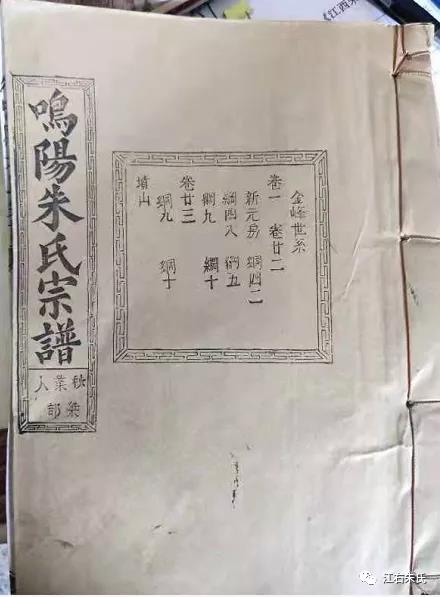 《江西朱
鳴陽朱氏宗譜
人葉秋
部
金峰世系
卷一 卷廿二
新元房 綱四二
綱四八 綱五
綱九 綱十
卷廿三
綱九 綱十
墳山
江右朱氏